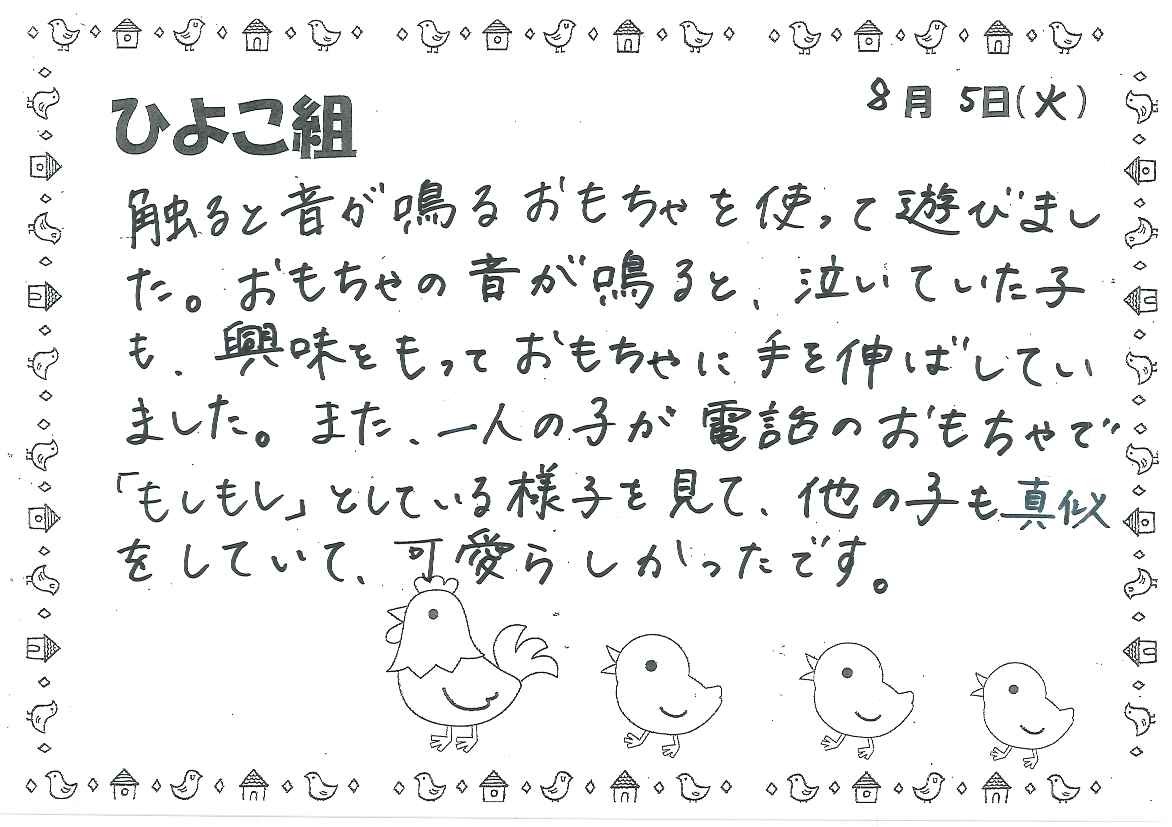 8月 5日(火)
ひよこ組
触ると音が鳴るおもちゃを使って遊びまし
た。おもちゃの音が鳴ると、泣いていた子
も、興味をもっておもちゃに手を伸ばしてい
ました。また、一人の子が電話のおもちゃで
「もしもし」としている様子を見て、他の子も真似
をしていて、可愛らしかったです。